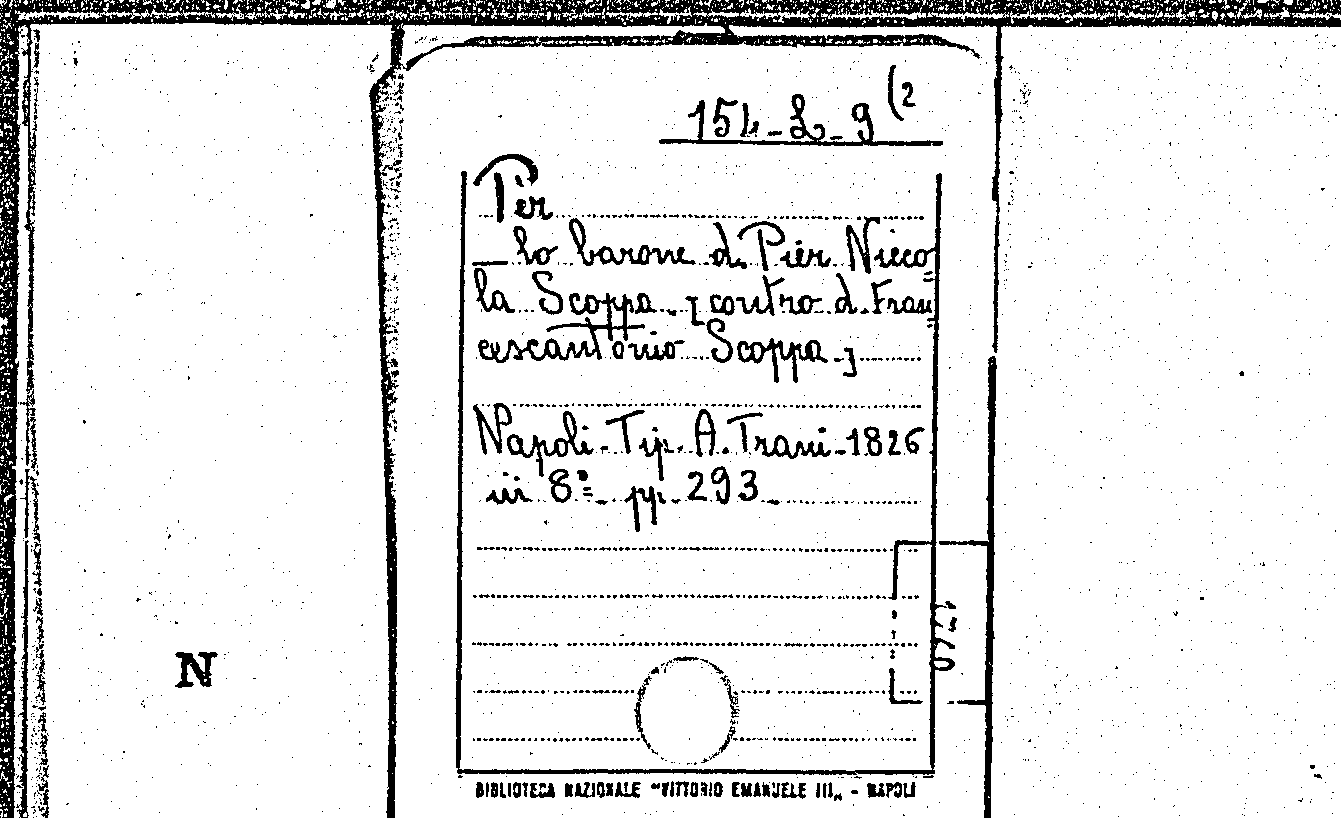 154-L-9 (2
Per
— lo barone d. Pier Nicco=
la Scoppa. [contro d. Fran=
cescantonio Scoppa.]
Napoli-Tip. A. Trani-1826
in 8º. pp. 293.
N
BIBLIOTECA NAZIONALE "VITTORIO EMANUELE III„ - NAPOLI